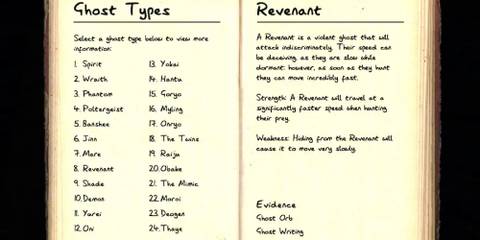 Ghost Types
Select a ghost type below to view more
information:
1. Spirit
2. Wraith
3. Phantom
4. Poltergeist
5. Banshee
6. Jinn
7. Mare
8. Revenant
9. Shade
10. Demon
11. Yurei
12. Oni
13. Yokai
14. Hantu
15. Goryo
16. Myling
17. Onryo
18. The Twins
19. Raiju
20. Obake
21. The Mimic
22. Moroi
23. Deogen
24. Thaye
Revenant
A Revenant is a violent ghost that will
attack indiscriminately. Their speed can
be deceiving, as they are slow while
dormant; however, as soon as they hunt
they can move incredibly fast.
Strength: A Revenant will travel at a
significantly faster speed when hunting
their prey.
Weakness: Hiding from the Revenant will
cause it to move very slowly.
Evidence
Ghost Orb
Ghost Writing